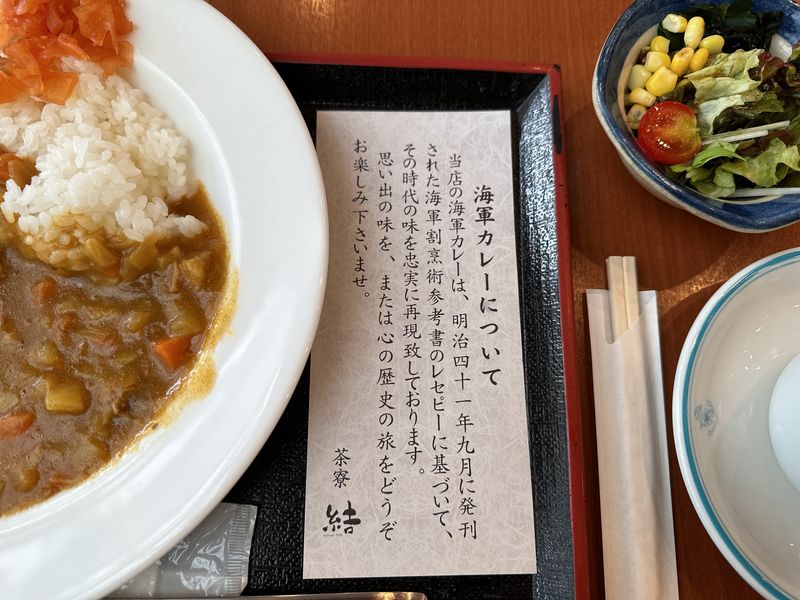 海軍カレーについて
当店の海軍カレーは、明治四十一年九月に発刊
された海軍割烹術参考書のレセピーに基づいて、
その時代の味を忠実に再現致しております。
思い出の味を、または心の歴史の旅をどうぞ
お楽しみ下さいませ。
茶寮 結